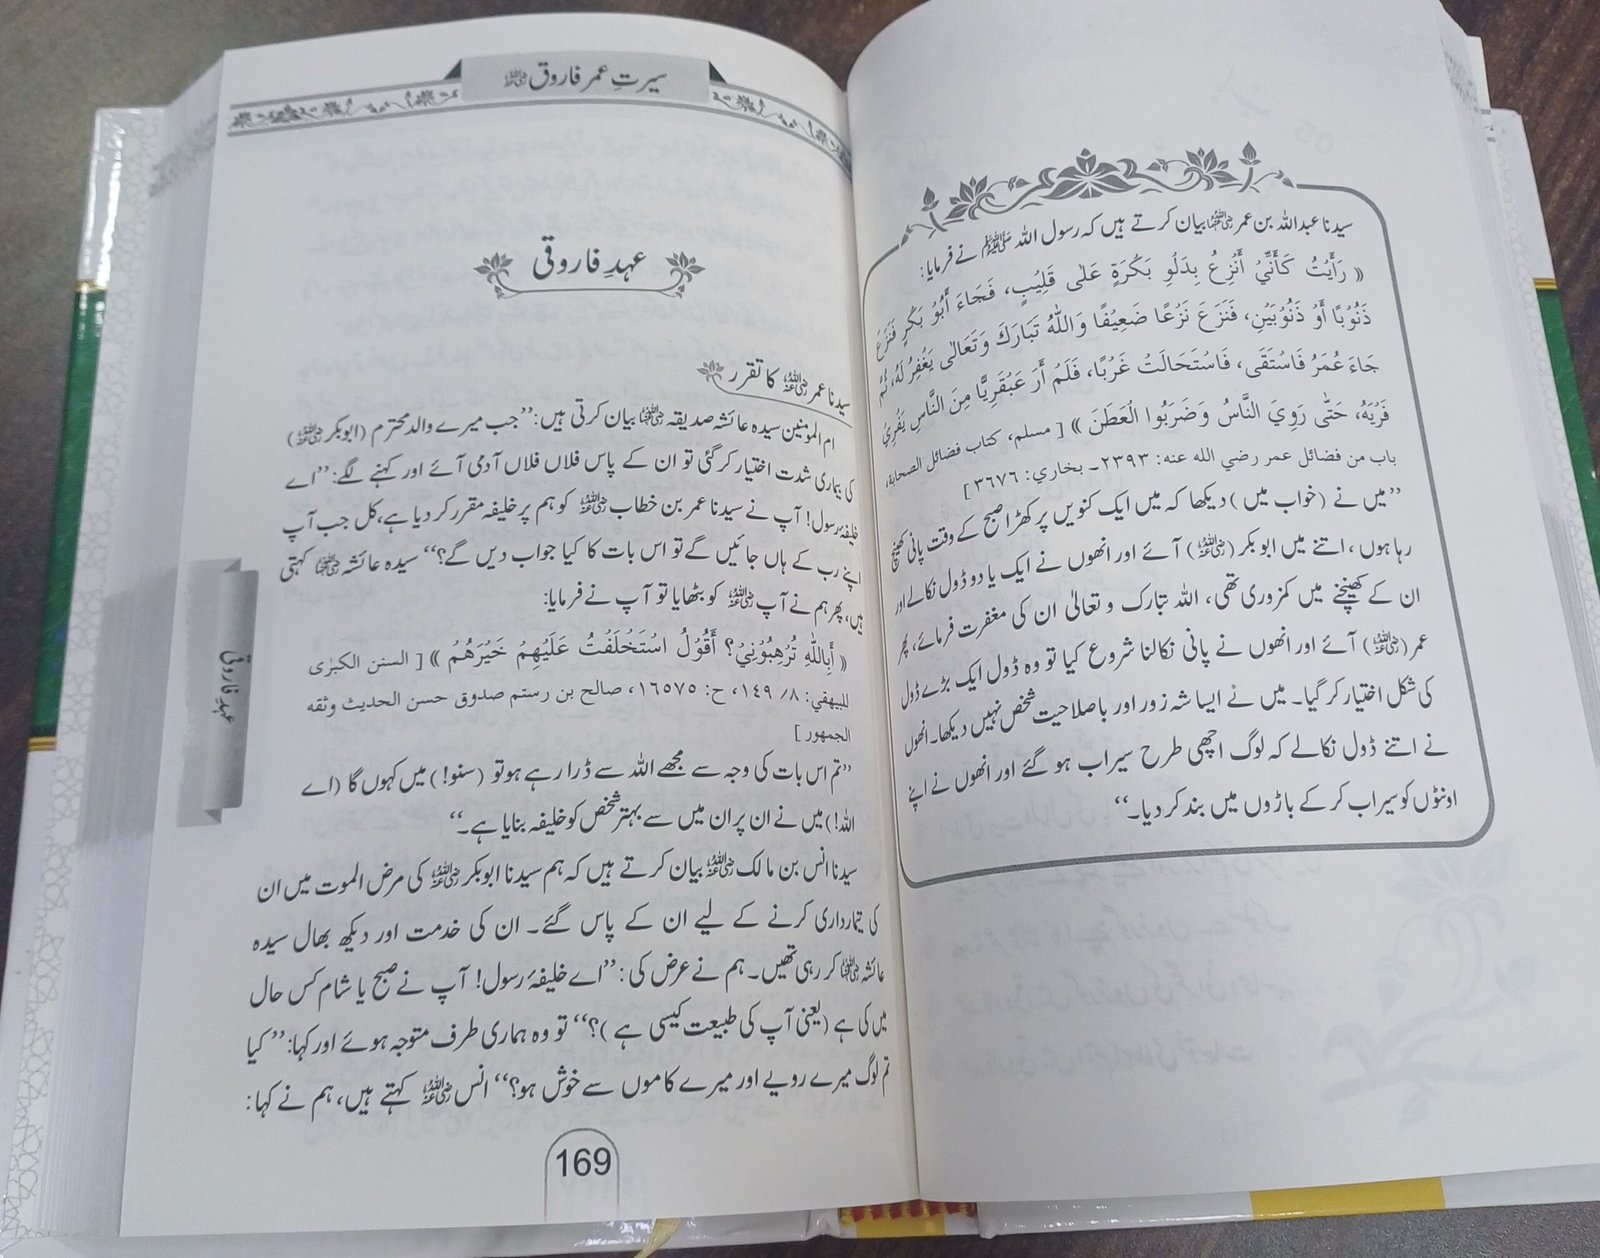 سیدنا عبداللہ بن عمر رضی اللہ عنہما بیان کرتے ہیں کہ رسول اللہ ﷺ نے فرمایا:
« رَأَيْتُ كَأَنِّيْ أَنْزِعُ بِدَلْوِ بَكْرَةٍ عَلٰى قَلِيْبٍ، فَجَاءَ أَبُوْ بَكْرٍ فَنَزَعَ
ذَنُوْبًا أَوْ ذَنُوْبَيْنِ، فَنَزَعَ نَزْعًا ضَعِيْفًا وَاللّٰهُ تَبَارَكَ وَتَعَالٰى يَغْفِرُ لَهُ، ثُمَّ
جَاءَ عُمَرُ فَاسْتَقَى، فَاسْتَحَالَتْ غَرْبًا، فَلَمْ أَرَ عَبْقَرِيًّا مِنَ النَّاسِ يَفْرِيْ
فَرْيَهُ، حَتّٰى رَوِيَ النَّاسُ وَضَرَبُوا الْعَطَنَ » [ مسلم، كتاب فضائل الصحابة،
باب من فضائل عمر رضي الله عنه: ٢٣٩٣۔ بخاري: ٣٦٧٦ ]
’’میں نے (خواب میں) دیکھا کہ میں ایک کنویں پر کھڑا صبح کے وقت پانی کھینچ
رہا ہوں، اتنے میں ابوبکر (رضی اللہ عنہ) آئے اور انھوں نے ایک یا دو ڈول نکالے اور
ان کے کھینچنے میں کمزوری تھی، اللہ تبارک و تعالیٰ ان کی مغفرت فرمائے، پھر
عمر (رضی اللہ عنہ) آئے اور انھوں نے پانی نکالنا شروع کیا تو وہ ڈول ایک بڑے ڈول
کی شکل اختیار کر گیا۔ میں نے ایسا شہ زور اور باصلاحیت شخص نہیں دیکھا۔ انھوں
نے اتنے ڈول نکالے کہ لوگ اچھی طرح سیراب ہو گئے اور انھوں نے اپنے
اونٹوں کو سیراب کر کے باڑوں میں بند کر دیا۔‘‘
سیرتِ عمر فاروق رضی اللہ عنہ
عہدِ فاروقی
سیدنا عمر رضی اللہ عنہ کا تقرر
ام المومنین سیدہ عائشہ صدیقہ رضی اللہ عنہا بیان کرتی ہیں: ’’جب میرے والد محترم (ابوبکر رضی اللہ عنہ)
کی بیماری شدت اختیار کر گئی تو ان کے پاس فلاں فلاں آدمی آئے اور کہنے لگے: ’’اے
خلیفۂ رسول! آپ نے سیدنا عمر بن خطاب رضی اللہ عنہ کو ہم پر خلیفہ مقرر کر دیا ہے، کل جب آپ
اپنے رب کے ہاں جائیں گے تو اس بات کا کیا جواب دیں گے؟‘‘ سیدہ عائشہ رضی اللہ عنہا کہتی
ہیں، پھر ہم نے آپ رضی اللہ عنہ کو بٹھایا تو آپ نے فرمایا:
« أَبِاللّٰهِ تُرْهِبُوْنِيْ؟ أَقُوْلُ اسْتَخْلَفْتُ عَلَيْهِمْ خَيْرَهُمْ » [ السنن الكبرى
للبيهقي: ٨/ ١٤٩، ح: ١٦٥٧٥، صالح بن رستم صدوق حسن الحديث وثقه
الجمهور ]
’’تم اس بات کی وجہ سے مجھے اللہ سے ڈرا رہے ہو تو (سنو!) میں کہوں گا (اے
اللہ!) میں نے ان پر ان میں سے بہتر شخص کو خلیفہ بنایا ہے۔‘‘
سیدنا انس بن مالک رضی اللہ عنہ بیان کرتے ہیں کہ ہم سیدنا ابوبکر رضی اللہ عنہ کی مرض الموت میں ان
کی تیمارداری کرنے کے لیے ان کے پاس گئے۔ ان کی خدمت اور دیکھ بھال سیدہ
عائشہ رضی اللہ عنہا کر رہی تھیں۔ ہم نے عرض کی: ’’اے خلیفۂ رسول! آپ نے صبح یا شام کس حال
میں کی ہے (یعنی آپ کی طبیعت کیسی ہے)؟‘‘ تو وہ ہماری طرف متوجہ ہوئے اور کہا: ’’کیا
تم لوگ میرے رویے اور میرے کاموں سے خوش ہو؟‘‘ انس رضی اللہ عنہ کہتے ہیں، ہم نے کہا:
عہدِ فاروقی
169